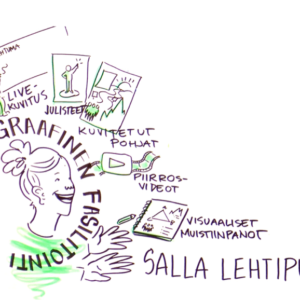 LIVE-
KUVITUS
JULISTEET
KUVITETUT
POHJAT
GRAAFINEN FASILITOINTI
PIIRROS-
VIDEOT
VISUAALISET
MUISTIINPANOT
SALLA LEHTIP